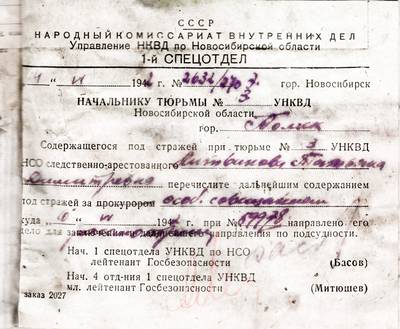 СССР
НАРОДНЫЙ КОМИССАРИАТ ВНУТРЕННИХ ДЕЛ
Управление НКВД по Новосибирской области
1-й СПЕЦОТДЕЛ
194 2 г. № 2632/270 гор. Новосибирск
НАЧАЛЬНИКУ ТЮРЬМЫ № 3 УНКВД
Новосибирской области
гор. Томск
Содержащегося под стражей при тюрьме № 3 УНКВД
НСО следственно-арестованного
Дмитревна перечислите дальнейшим содержанием
под стражей за прокурором особ. совещанием
куда 194 г. при № направлено его
дело для направления по подсудности.
Нач. 1 спецотдела УНКВД по НСО
лейтенант Госбезопасности (Басов)
Нач. 4 отд-ния 1 спецотдела УНКВД
мл. лейтенант Госбезопасности (Митюшев)
заказ 2027